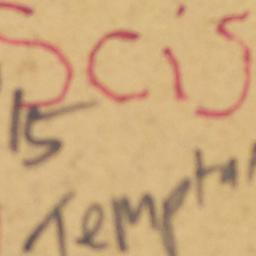 Scis
15
Tempta